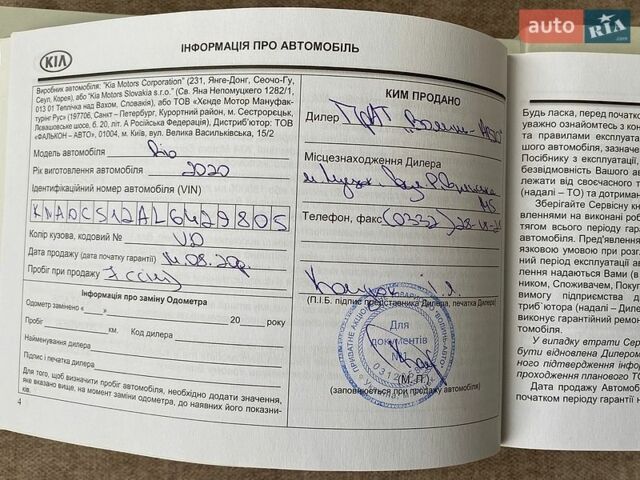 auto RIA.com
KIA
ІНФОРМАЦІЯ ПРО АВТОМОБІЛЬ
Виробник автомобіля: "Kia Motors Corporation" (231, Янге-Донг, Сеочо-Гу,
Сеул, Корея), або "Kia Motors Slovakia s.r.o." (Св. Яна Непомуцкего 1282/1,
013 01 Теплічка над Вахом, Словакія), або ТОВ «Хєнде Мотор Мануфак-
туринг Рус» (197706, Санкт – Петербург, Курортний район, м. Сестрорєцьк,
Лєвашовське шосе, б. 20, літ. А Російська Федерація), Дистриб'ютор: ТОВ
«ФАЛЬКОН – АВТО», 01004, м. Київ, вул. Велика Васильківська, 15/2
Модель автомобіля Rio
Рік виготовлення автомобіля 2020
Ідентифікаційний номер автомобіля (VIN)
Колір кузова, кодовий №
Дата продажу (дата початку гарантії)
Пробіг при продажу
Інформація про заміну Одометра
Одометр замінено « » 20 року
Пробіг км. Код дилера
Найменування дилера
Підпис і печатка дилера
Для того, щоб визначити пробіг автомобіля, необхідно додати значення,
яке вказано вище, на момент заміни одометра, до наявних його показни-
ків.
4
КИМ ПРОДАНО
Дилер
Місцезнаходження Дилера
Телефон, факс (0332)
(П.І.Б. підпис представника Дилера, печатка Дилера)
Для
документів
(М. П.)
(заповнюються при продажу автомобіля)
Будь ласка, перед початко
уважно ознайомтесь з кон
та правилами експлуата
шого автомобіля, зазначе
Посібнику з експлуатації.
безвідмовність Вашого ав
лежати від своєчасного т
(надалі – ТО) та дотриман
Зберігайте Сервісну кн
вленнями на виконані роб
тягом всього періоду гара
автомобіля. Пред'явлення
язковою умовою при розгл
ний період експлуатації ав
влення надаються Вами (в
ником, Споживачем, Покуп
вимогу підприємства д
триб'ютора (надалі – Дилер
виконує гарантійний ремон
томобіля.
У випадку втрати Серв
бути відновлена Дилером
ного підтвердження інфор
проходження планового ТО
Дата продажу Автомобі
початком періоду гарантії н